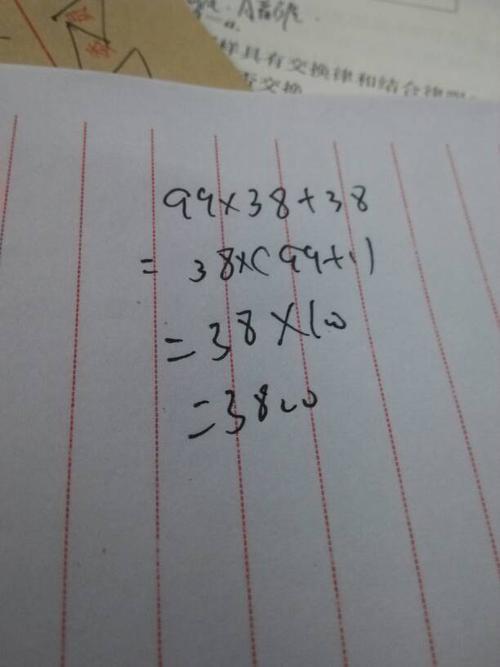 样具有交换律和结合律
有交换
99×38+38
=38×(99+1)
=38×100
=3800